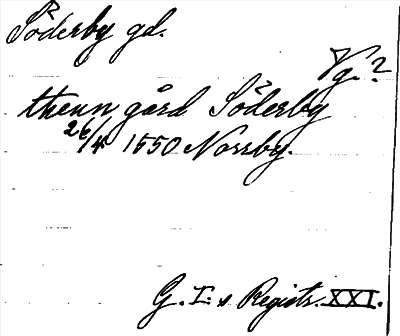 Söderby gd.
Vg.?
thenn gård Söderby
26/4 1550 Norrby.
G. I:s Registr. XXI.